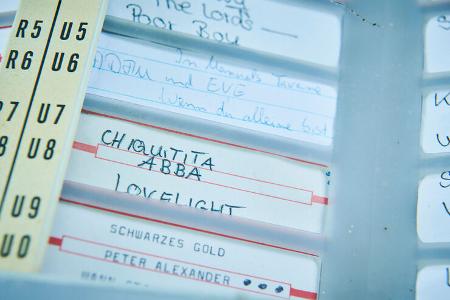 The Lords —
Poor Boy
R5 U5
R6 U6
In Manuels Taverne
ADAM und EVE
Wenn du alleine bist
U7
U8
CHIQUITITA
ABBA
LOVELIGHT
U9
U0
SCHWARZES GOLD
PETER ALEXANDER